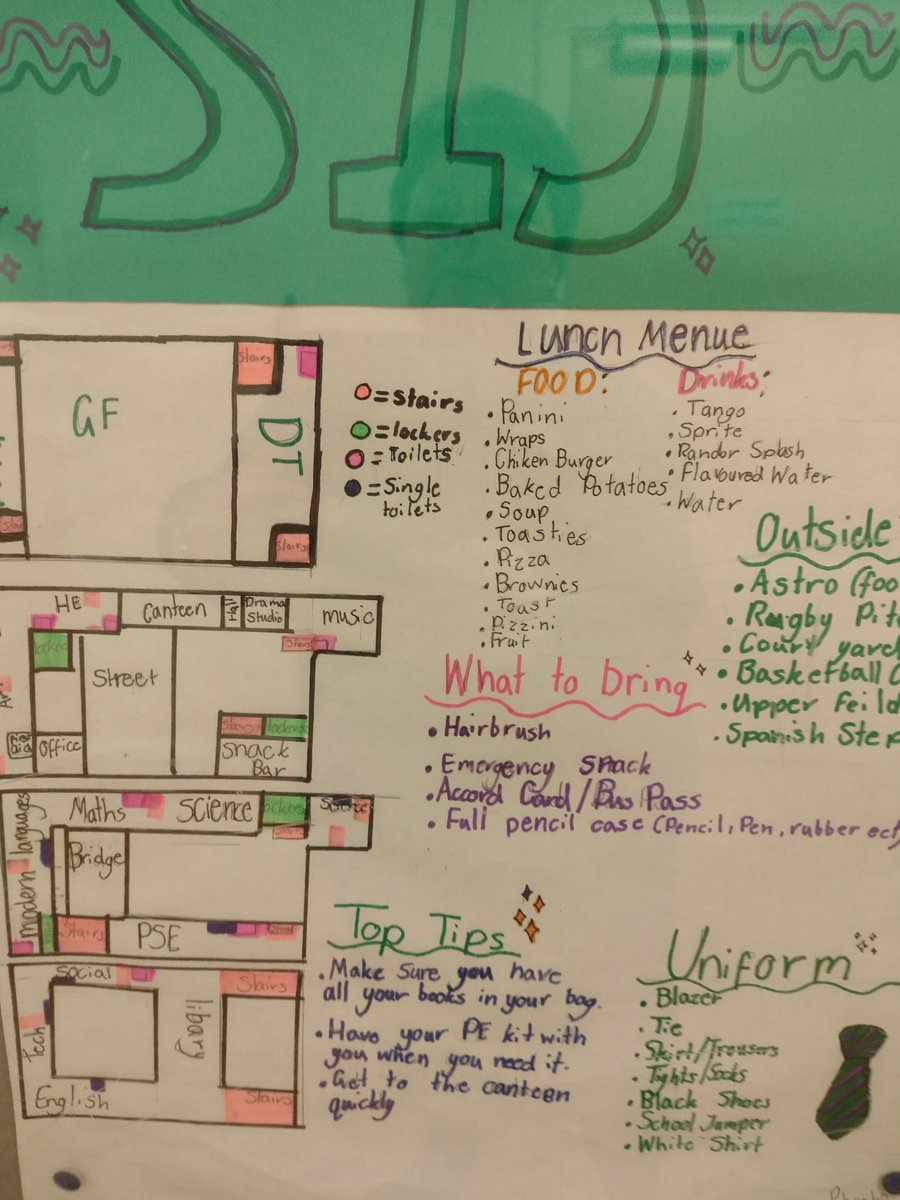 SIJ
GF
Stairs
DT
Stairs
= stairs
= lockers
= Toilets
= Single
toilets
HE
Canteen
Hall
Drama
Studio
music
Street
Stairs
Office
Stairs
lockers
Snack
Bar
Maths
Science
lockers
Science
modern languages
Bridge
Stairs
PSE
Social
Stairs
Tech
libary
English
Stairs
Lunch Menue
FOOD:
• Panini
• Wraps
• Chiken Burger
• Baked Potatoes
• Soup
• Toasties
• Pizza
• Brownies
• Toast
• Pizzini
• Fruit
Drinks:
• Tango
• Sprite
• Randor Splash
• Flavoured Water
• Water
Outside
• Astro (foo
• Rugby Pit
• Court yard
• Basketball C
• Upper Feild
• Spanish Step
What to bring
• Hairbrush
• Emergency snack
• Accord Card/Bus Pass
• Full pencil case (Pencil, Pen, rubber ect)
Top Tips
• Make Sure you have
all your books in your bag.
• Have your PE kit with
you when you need it.
• Get to the canteen
quickly
Uniform
• Blazer
• Tie
• Skirt/Trousers
• Tights/Socks
• Black Shoes
• School Jumper
• White Shirt